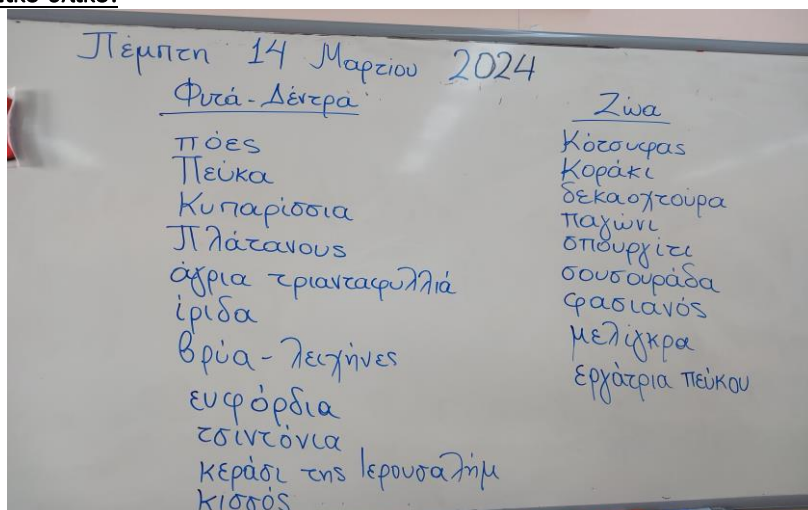 Πέμπτη 14 Μαρτίου 2024
Φυτά - Δέντρα
πόες
Πεύκα
Κυπαρίσσια
Πλάτανους
άγρια τριανταφυλλιά
ίριδα
βρύα - λειχήνες
ευφόρδια
τσιντόνια
κεράσι της Ιερουσαλήμ
κισσός
Ζώα
Κότσυφας
Κοράκι
δεκαοχτούρα
παγώνι
σπουργίτι
σουσουράδα
φασιανός
μελίγκρα
εργάτρια πεύκου